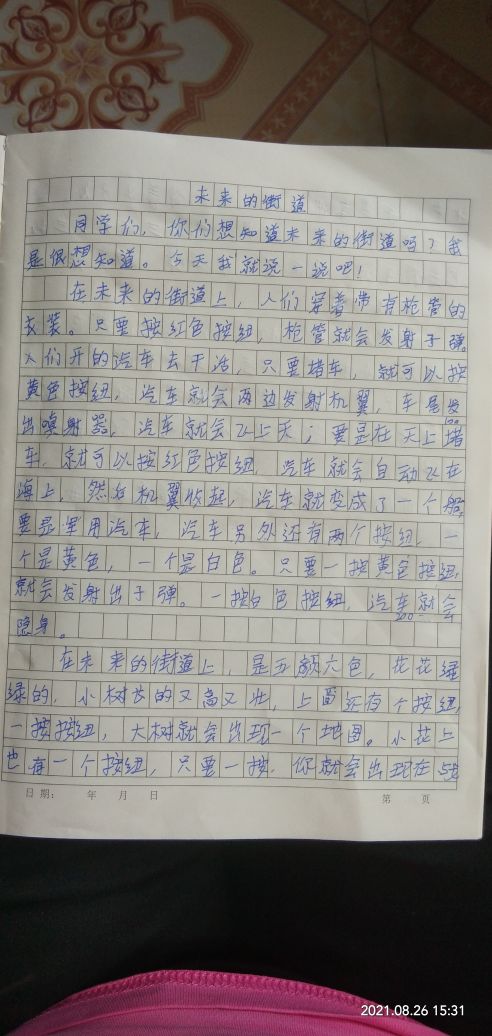 未来的街道
同学们，你们想知道未来的街道吗？我
是很想知道。今天我就说一说吧！
在未来的街道上，人们穿着带有枪管的
衣装。只要按红色按纽，枪管就会发射子弹。
人们开的汽车去干活，只要堵车，就可以按
黄色按纽，汽车就会两边发射机翼，车尾发
100
出喷射器，汽车就会飞上天；要是在天上堵
车，就可以按红色按纽，汽车就会自动飞在
海上，然后机翼收起，汽车就变成了一个船。
要是军用汽车，汽车另外还有两个按纽，一
个是黄色，一个是白色。只要一按黄色按纽，
就会发射出子弹。一按白色按纽，汽车就会
200
隐身。
在未来的街道上，是五颜六色，花花绿
绿的，小树长的又高又壮，上面还有个按纽，
一按按纽，大树就会出现一个地图。小花上
也有一个按纽，只要一按，你就会出现在
日期： 年 月 日 第 页
2021.08.26 15:31